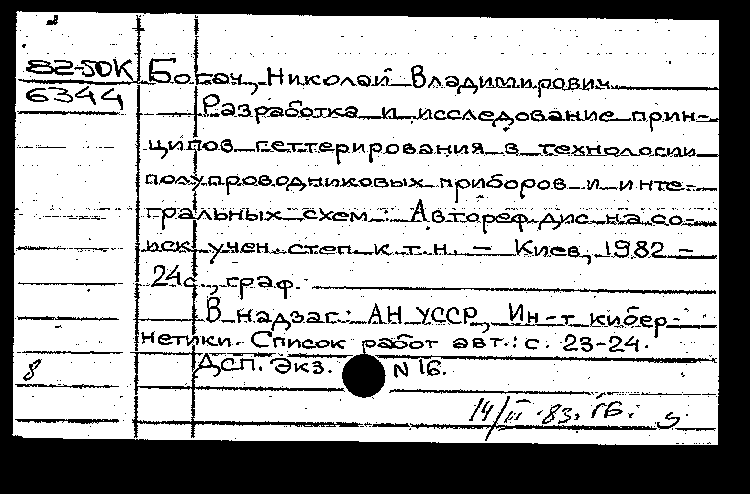 82-5ДК Богач, Николай Владимирович
6344 Разработка и исследование прин-
ципов геттерирования в технологии
полупроводниковых приборов и инте-
гральных схем: Автореф. дис. на со-
иск. учен. степ. к.т.н. – Киев, 1982 –
24с., граф.
В надзаг.: АН УССР, Ин-т кибер-
нетики. Список работ авт.: с. 23-24.
ДСП. Экз. N 16.
8
14/II-83. ГБ.